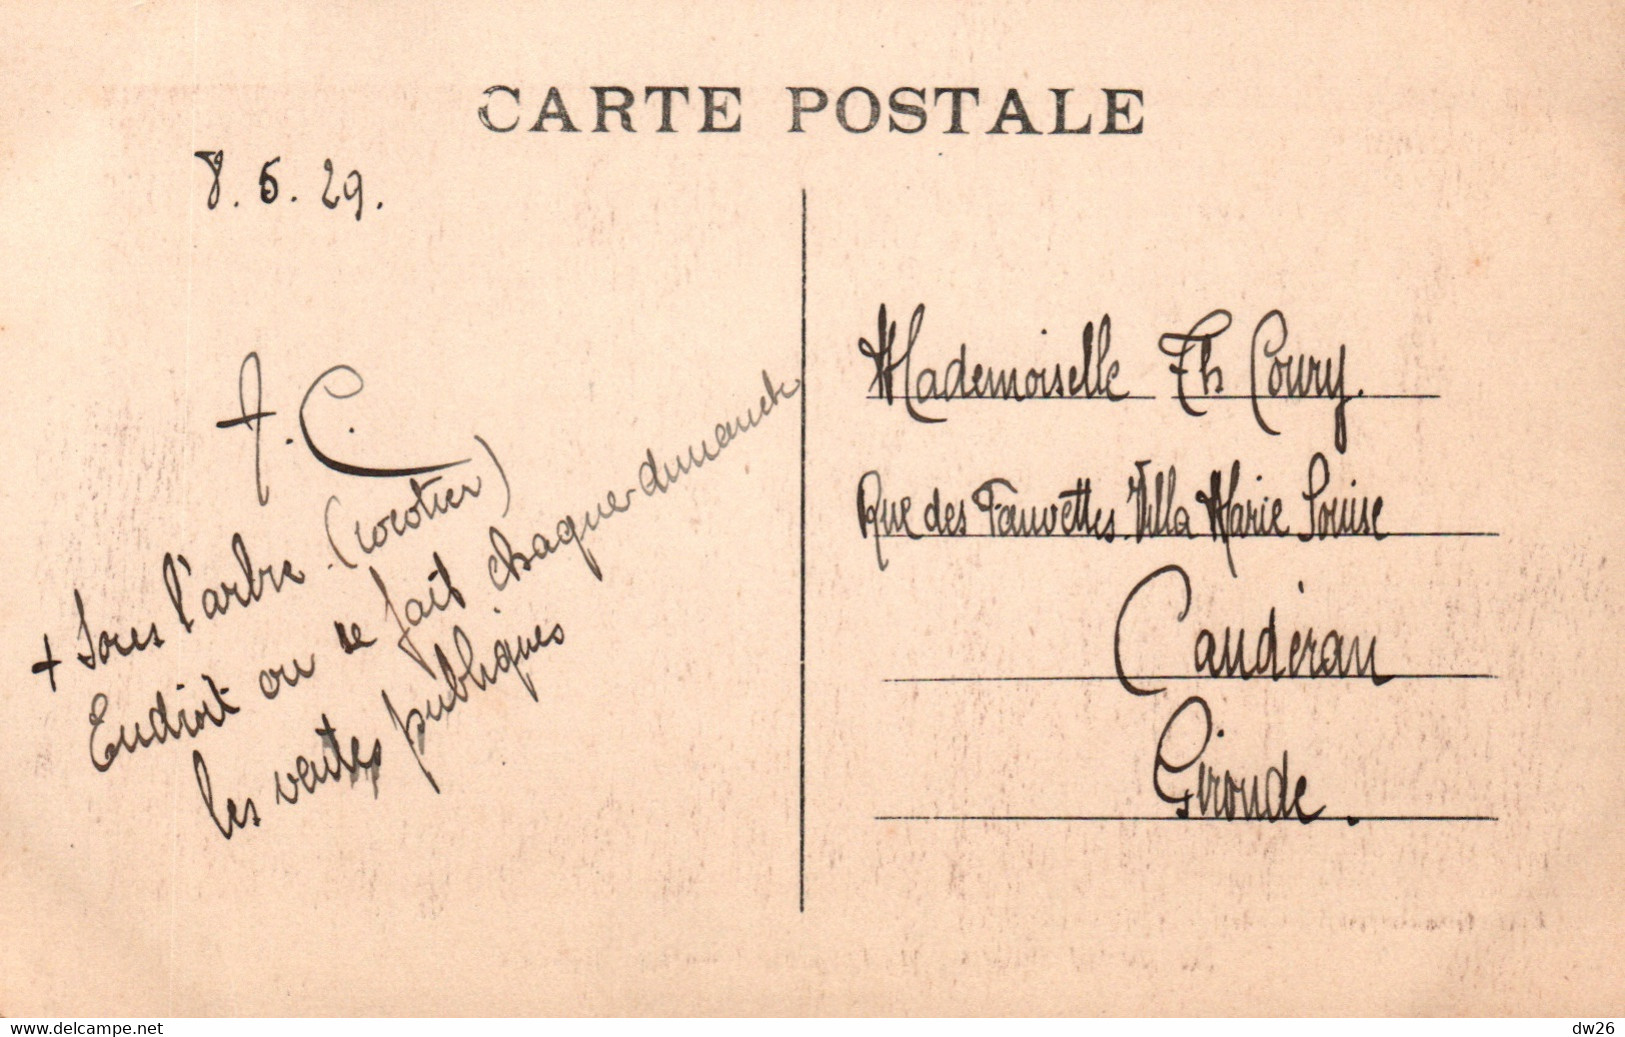 CARTE POSTALE
8.6.29.
A.C.
+ Sous l'arbre (cocotier)
Endroit ou se fait chaque dimanche
les ventes publiques
Mademoiselle Th Coury.
Rue des Fauvettes. Villa Marie Louise
Caudéran
Gironde.
www.delcampe.net
dw26